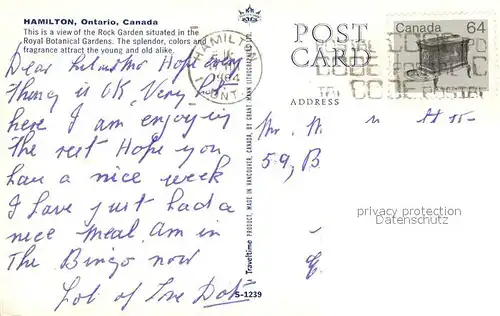 HAMILTON, Ontario, Canada
This is a view of the Rock Garden situated in the
Royal Botanical Gardens. The splendor, colors and
fragrance attract the young and old alike.
Dear Hope every
Thing is OK Very
here I am enjoying
the rest Hope you
have a nice week
I have just had a
nice meal. am in
The Bingo now
Lot of Love Dot
S-1239
Traveltime PRODUCT, MADE IN VANCOUVER, CANADA, BY GRANT MANN LITHOGRAPHERS LTD.
HAMILTON
ONT
POST
CARD
ADDRESS
Canada 64
CODE POSTAL
Mr.
59, B
privacy protection
Datenschutz